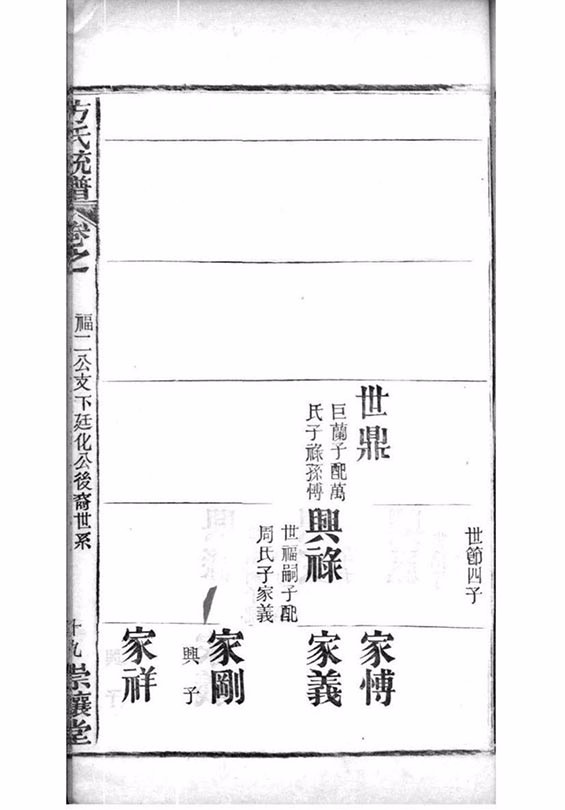 世節四子
世鼎
巨蘭子配萬
氏子祿孫愽
興祿
世福嗣子配
周氏子家義
家愽
家義
家剛
興 子
家祥
方氏統譜
卷之
福二公支下廷化公後裔世系
十九
崇讓堂